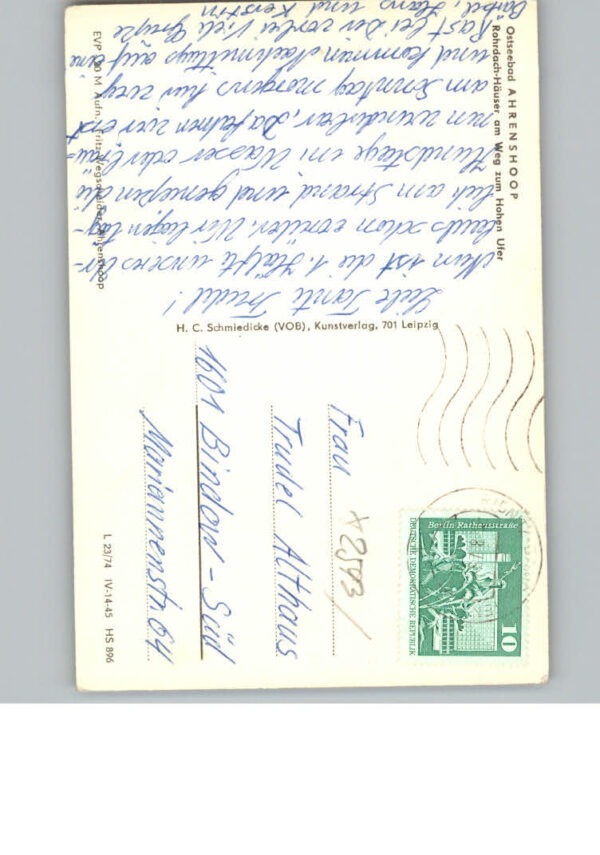 Ostseebad AHRENSHOOP
Rohrdach-Häuser am Weg zum Hohen Ufer
Liebe Tante Trudel!
Nun ist die 1. Hälfte unseres Ur-
laubs schon vorüber. Wir liegen täg-
lich am Strand und genießen die
Hundstage im Wasser oder bräu-
nen wunderbar. Da fahren wir erst
am Sonntag morgens hier weg
und kommen Nachmittags auf eine
Rast bei Dir vorbei. Viele Grüße
Bärbel, Hans und Kerstin
EVP 0,20 M Aufn.: Fritz Wegscheider, Ahrenshoop
H. C. Schmiedicke (VOB), Kunstverlag, 701 Leipzig
Berlin Rathausstraße
DEUTSCHE DEMOKRATISCHE REPUBLIK
10
Frau
Trudel Althaus
1601 Bindow-Süd
Mariannenstr. 64
L 23/74 IV-14-45 HS 896